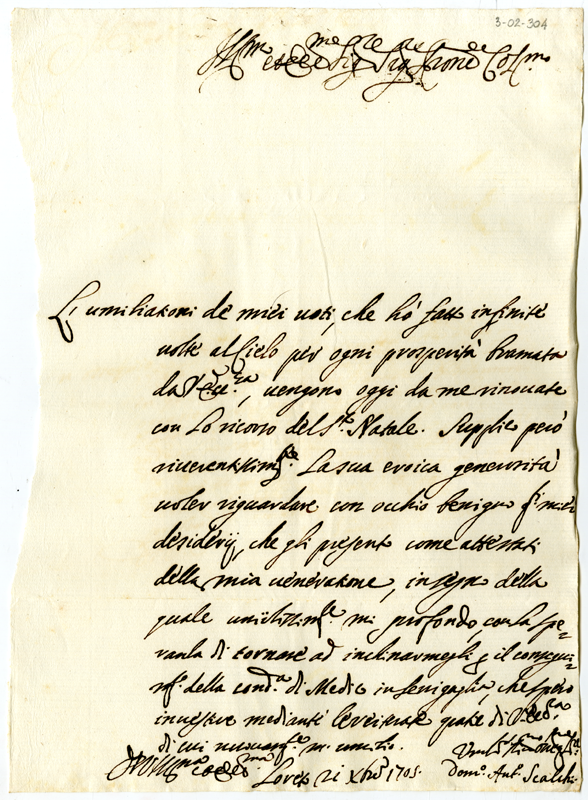 3-02-304
Ill.mo et Ecc.mo Sig.re Sig.re Prone Col.mo
L'umiliationi de miei voti, che hò fatt infinite
volte al Cielo per ogni prosperità bramata
da V. Ecc.za, vengono oggi da me rinovate
con Lo ricorso del S.to Natale. Supplic però
riverentissim.te La sua eroica generosità
voler riguardare con occhio benigno q.sti miei
desiderij, che gli present come attestati
della mia veneratione, in segn della
quale umilissim.te mi profondo, con la spe=
ranza di tornare ad inchinarmegli p il consegui=
della cond.a di Medic in Senigaglia, che spero
mediante le gratie di V. Ecc.za
di cui nuovam.te
Di V. Ill.ma et Ecc.ma
Loreto 21 Xbre 1705.
Dom.o Ant.o Scalchi